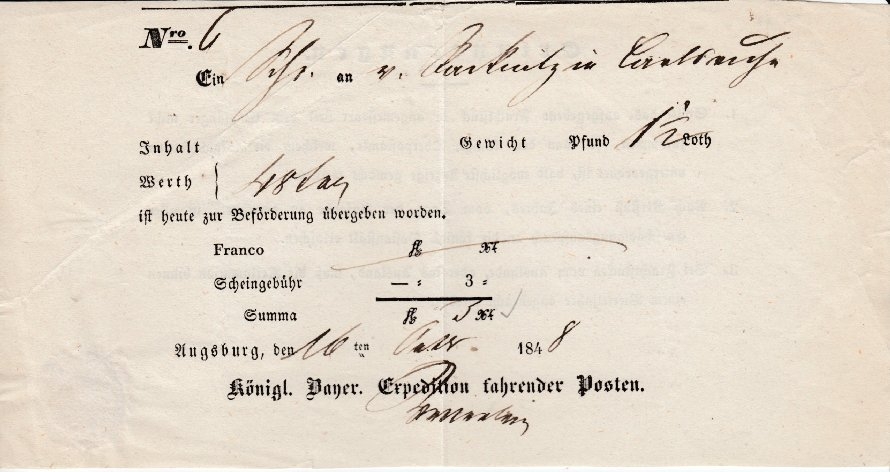 Nro. 6
Ein Schr. an v. in Carlsruhe
Inhalt Gewicht Pfund 1 1/2 Loth
Werth
ist heute zur Beförderung übergeben worden.
Franco fl. xr.
Scheingebühr — " 3 "
Summa fl. 3 xr.
Augsburg, den 16 ten 1848
Königl. Bayer. Expedition fahrender Posten.